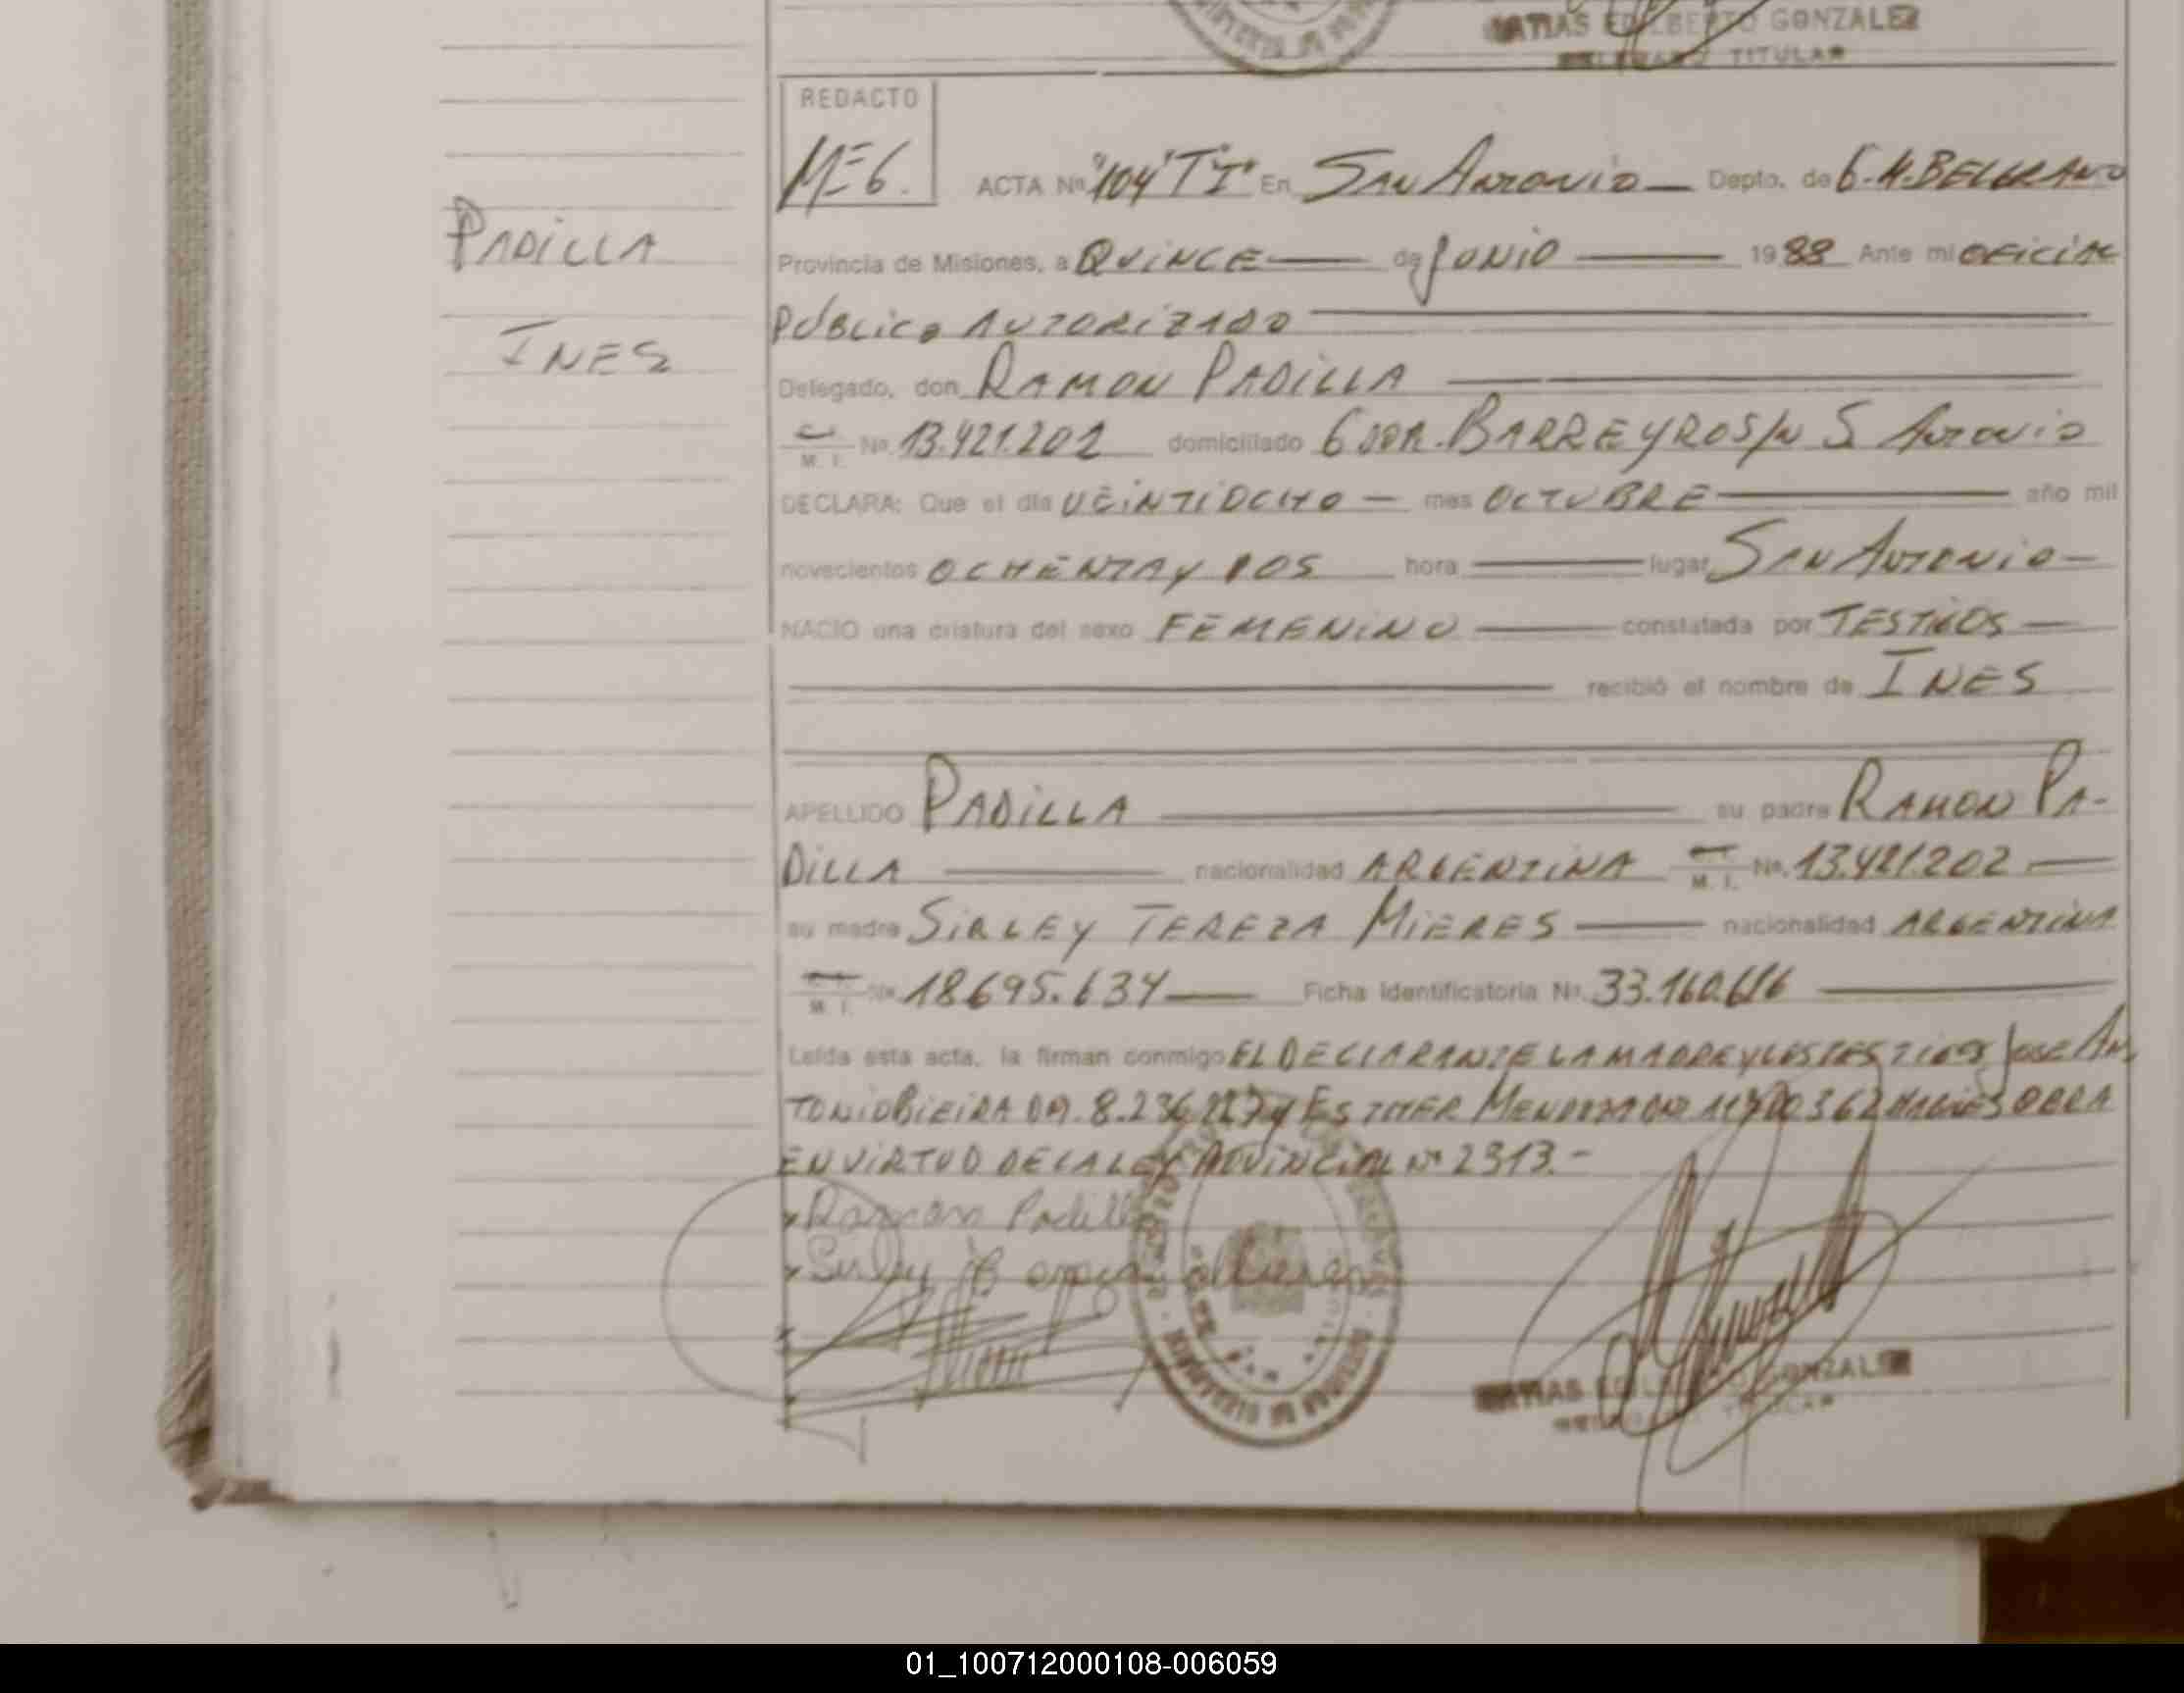 MATIAS EDILBERTO GONZALEZ
DELEGADO TITULAR
REDACTO
M=6.
ACTA Nº "104" TºIº En SAN ANTONIO — Depto. de G.M. BELGRANO
PADILLA
INES
Provincia de Misiones, a QUINCE — de JUNIO — 1988 Ante mi OFICIAL
PUBLICO AUTORIZADO —
Delegado, don RAMON PADILLA —
M. I. Nº 13.421.202 domiciliado GDOR. BARREYRO S/N S. ANTONIO
DECLARA: Que el día VEINTIOCHO — mes OCTUBRE — año mil
novecientos OCHENTA Y DOS hora — lugar SAN ANTONIO —
NACIO una criatura del sexo FEMENINO — constatada por TESTIGOS —
— recibió el nombre de INES
APELLIDO PADILLA — su padre RAMON PA-
DILLA — nacionalidad ARGENTINA M. I. Nº 13.421.202 —
su madre SIRLEY TEREZA MIERES — nacionalidad ARGENTINA
M. I. Nº 18.695.634 — Ficha Identificatoria Nº 33.160.616 —
Leída esta acta, la firman conmigo EL DECLARANTE LA MADRE Y LOS TESTIGOS JOSE AN
TONIO BIEIRA 8.236.227 Y ESTHER MENDOZA OBRA
EN VIRTUD DE LA LEY PROVINCIAL Nº 2313.-
Ramon Padilla
Sirley
MATIAS EDILBERTO GONZALEZ
DELEGADO TITULAR
01_100712000108-006059